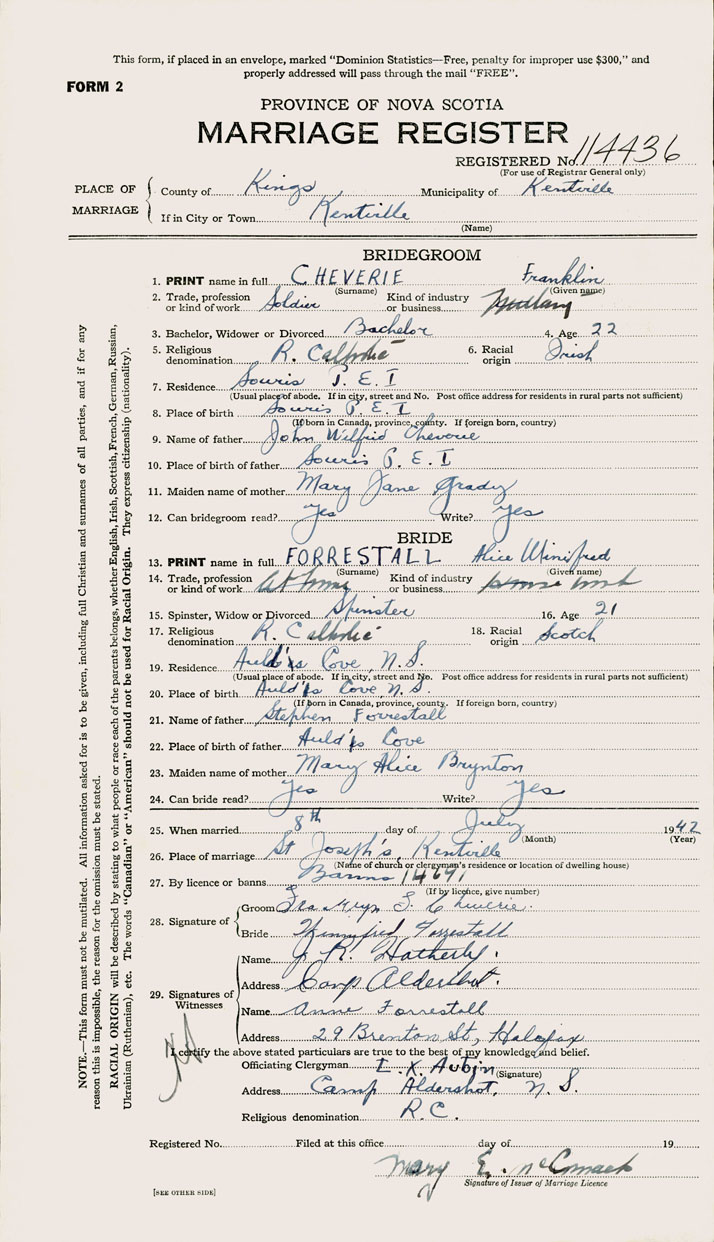 This form, if placed in an envelope, marked "Dominion Statistics—Free, penalty for improper use $300," and
properly addressed will pass through the mail "FREE".
FORM 2
PROVINCE OF NOVA SCOTIA
MARRIAGE REGISTER
REGISTERED No. 114436
(For use of Registrar General only)
PLACE OF MARRIAGE
County of Kings Municipality of Kentville
If in City or Town Kentville
(Name)
BRIDEGROOM
1. PRINT name in full CHEVERIE Franklin
(Surname) (Given name)
2. Trade, profession or kind of work Soldier Kind of industry or business Military
3. Bachelor, Widower or Divorced Bachelor 4. Age 22
5. Religious denomination R. Catholic 6. Racial origin Irish
7. Residence Souris P. E. I
(Usual place of abode. If in city, street and No. Post office address for residents in rural parts not sufficient)
8. Place of birth Souris P. E. I
(If born in Canada, province, county. If foreign born, country)
9. Name of father John Wilfrid Cheverie
10. Place of birth of father Souris P. E. I
11. Maiden name of mother Mary Jane Grady
12. Can bridegroom read? Yes Write? Yes
BRIDE
13. PRINT name in full FORRESTALL Alice Winifred
(Surname) (Given name)
14. Trade, profession or kind of work At home Kind of industry or business House work
15. Spinster, Widow or Divorced Spinster 16. Age 21
17. Religious denomination R. Catholic 18. Racial origin Scotch
19. Residence Auld's Cove, N.S.
(Usual place of abode. If in city, street and No. Post office address for residents in rural parts not sufficient)
20. Place of birth Auld's Cove, N. S.
(If born in Canada, province, county. If foreign born, country)
21. Name of father Stephen Forrestall
22. Place of birth of father Auld's Cove
23. Maiden name of mother Mary Alice Brynton
24. Can bride read? Yes Write? Yes
25. When married 8th day of July 1942
(Month) (Year)
26. Place of marriage St Joseph's, Kentville
(Name of church or clergyman's residence or location of dwelling house)
27. By licence or banns Banns 14691
(If by licence, give number)
28. Signature of Groom Cheverie
Bride Winnifred Forrestall
29. Signatures of Witnesses
Name J. R. Hatherly.
Address Camp Aldershot.
Name Anne Forrestall
Address 29 Brenton St, Halifax
I certify the above stated particulars are true to the best of my knowledge and belief.
Officiating Clergyman L. X. Aubin
(Signature)
Address Camp Aldershot, N. S.
Religious denomination R.C.
Registered No. Filed at this office day of 19
Mary E. McCormack
Signature of Issuer of Marriage Licence
[SEE OTHER SIDE]
NOTE.—This form must not be mutilated. All information asked for is to be given, including full Christian and surnames of all parties, and if for any
reason this is impossible, the reason for the omission must be stated.
RACIAL ORIGIN will be described by stating to what people or race each of the parents belongs, whether English, Irish, Scottish, French, German, Russian,
Ukrainian (Ruthenian), etc. The words "Canadian" or "American" should not be used for Racial Origin. They express citizenship (nationality).